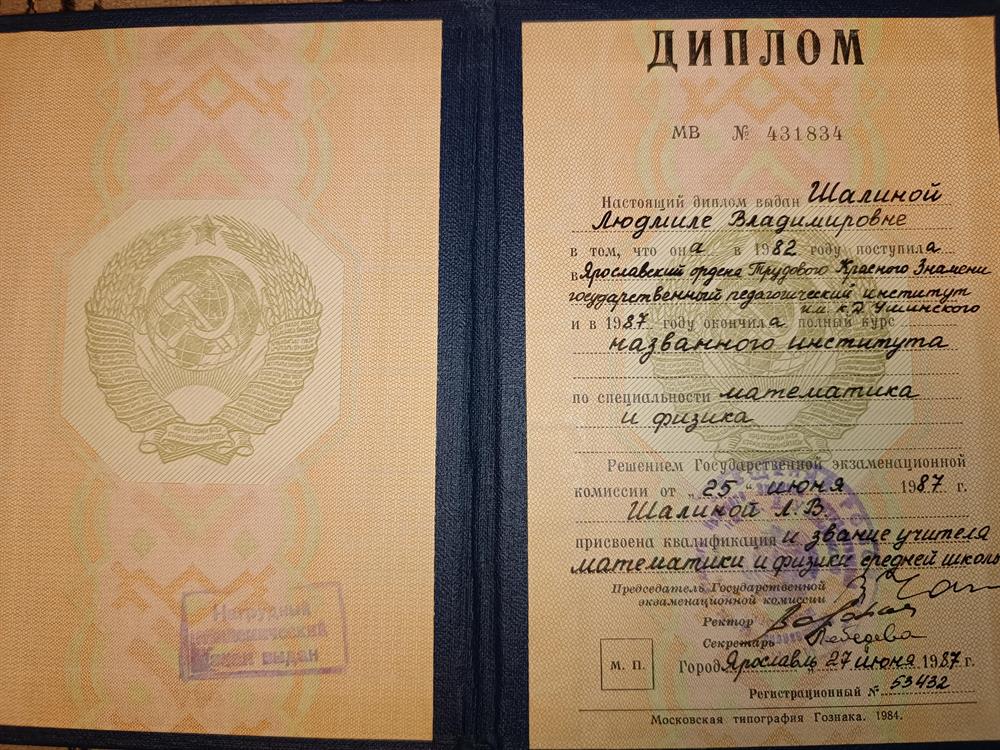 Нагрудный
академический
знак выдан
ДИПЛОМ
МВ № 431834
Настоящий диплом выдан Шалиной
Людмиле Владимировне
в том, что она в 1982 году поступила
в Ярославский ордена Трудового Красного Знамени
государственный педагогический институт
им. К.Д. Ушинского
и в 1987 году окончила полный курс
названного института
по специальности математика
и физика
Решением Государственной экзаменационной
комиссии от „25" июня 1987 г.
Шалиной Л.В.
присвоена квалификация и звание учителя
математики и физики средней школы
Председатель Государственной
экзаменационной комиссии
Ректор
Секретарь Лебедева
М. П.
Город Ярославль 27 июня 1987 г.
Регистрационный № 53432
Московская типография Гознака. 1984.